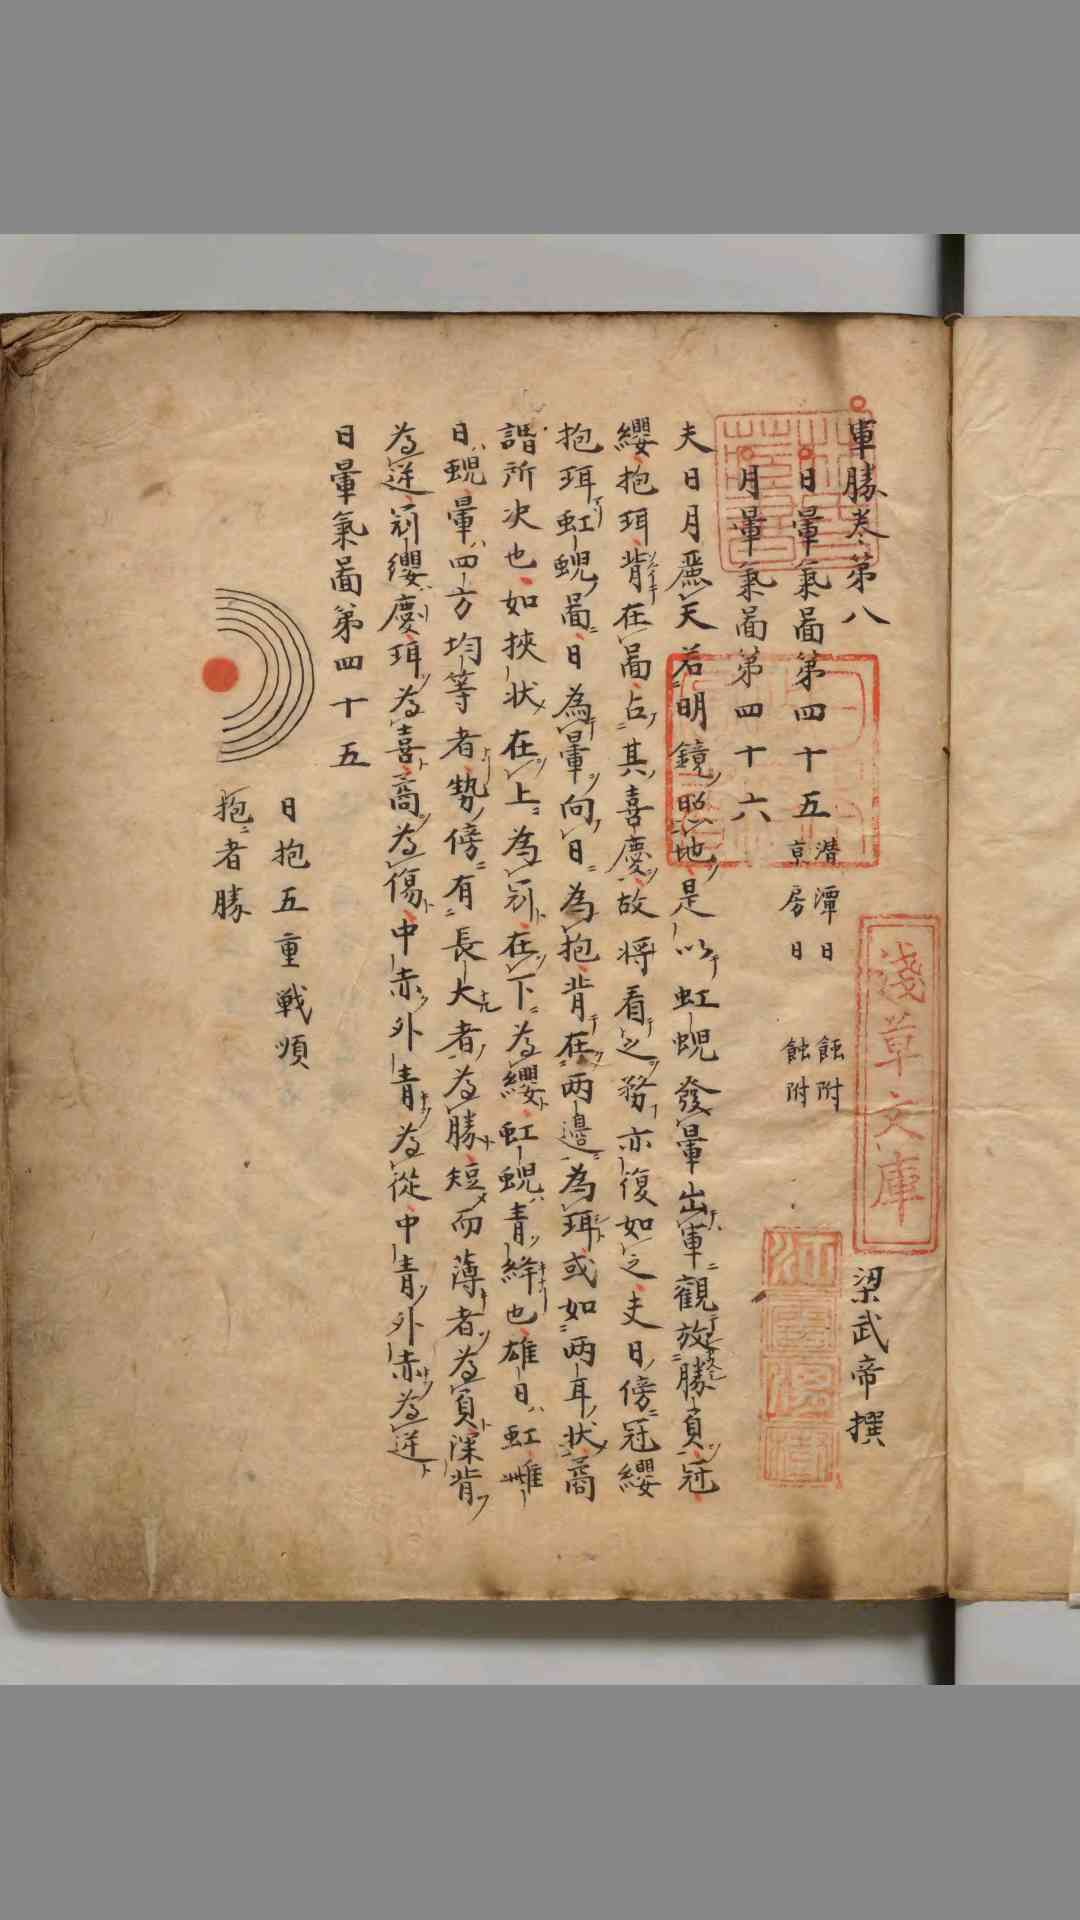 軍勝卷第八 梁武帝撰
日暈氣啚第四十五 潜潭日 蝕附
京房日 蝕附
月暈氣啚第四十六
夫日月麗天若明鏡照地是以虹蜺發暈出軍觀放勝負冠
纓抱珥背在啚占其喜慶故将看之務亦復如之夫日傍冠纓
抱珥虹蜺啚日為暈向日為抱背在两邉為珥或如两耳状啇
諧所决也如挾状在上為冠在下為纓虹蜺青絳也雄日虹雌
日蜺暈四方均等者勢傍有長大者為勝短而薄者為負深背
為逆冠纓慶珥為喜啇為傷中赤外青為從中青外赤為逆
日暈氣啚第四十五
日抱五重戦順
抱者勝
淺草文庫